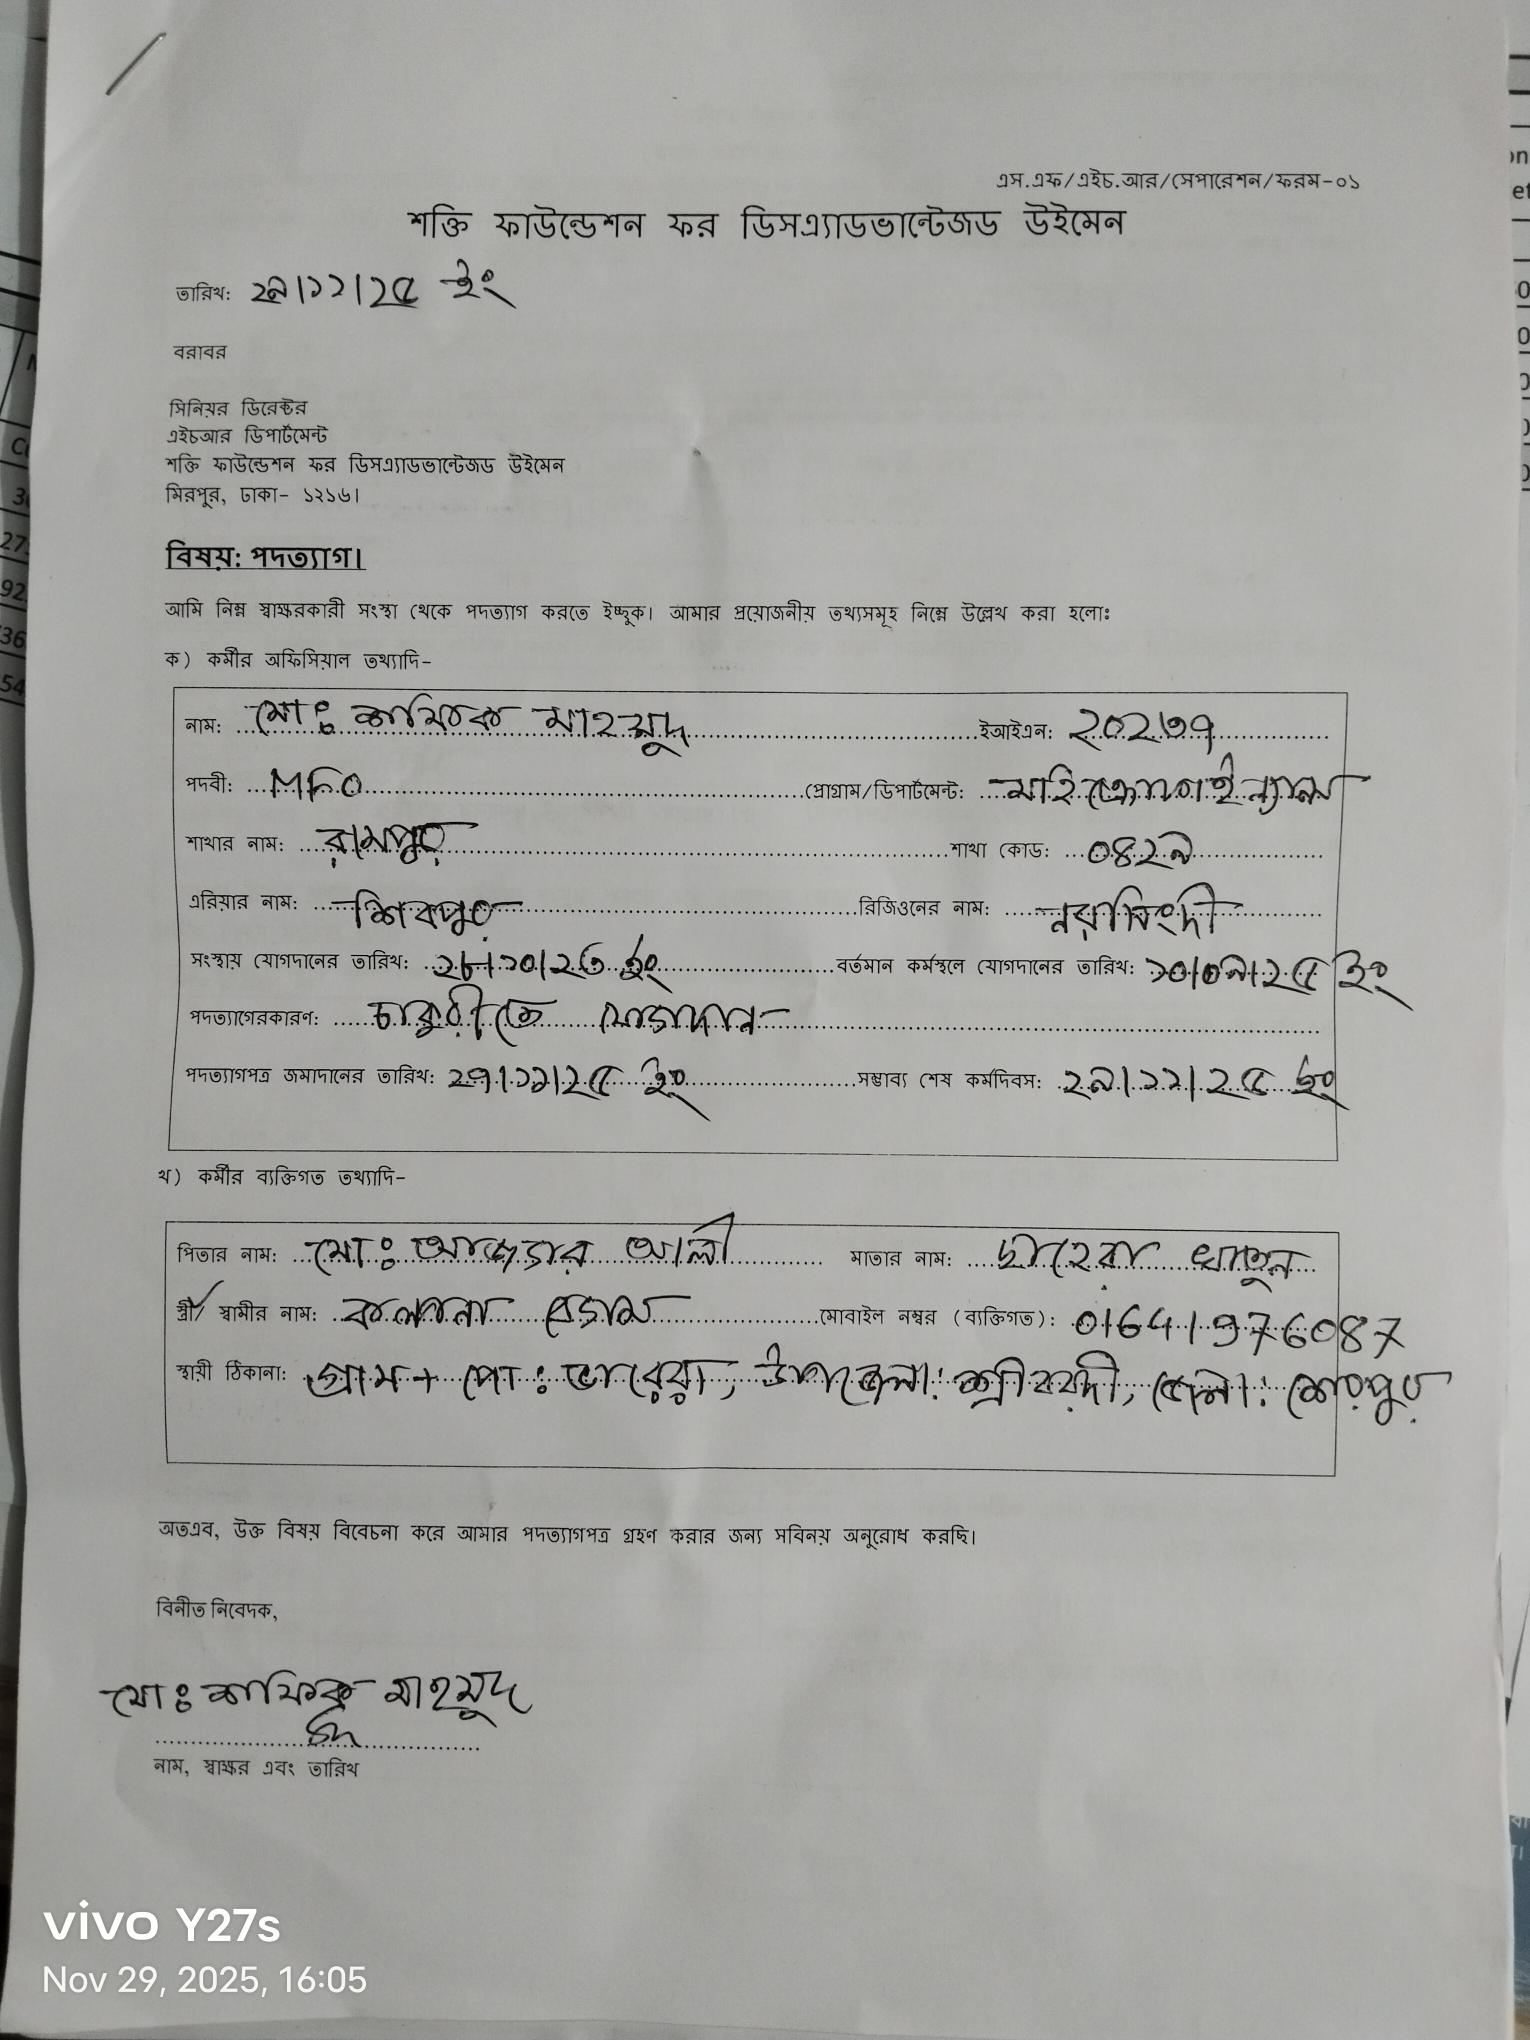 এস.এফ/এইচ.আর/সেপারেশন/ফরম-০১
শক্তি ফাউন্ডেশন ফর ডিসএ্যাডভান্টেজড উইমেন
তারিখ: ২৯/১১/২৫ ইং
বরাবর
সিনিয়র ডিরেক্টর
এইচআর ডিপার্টমেন্ট
শক্তি ফাউন্ডেশন ফর ডিসএ্যাডভান্টেজড উইমেন
মিরপুর, ঢাকা- ১২১৬।
বিষয়: পদত্যাগ।
আমি নিম্ন স্বাক্ষরকারী সংস্থা থেকে পদত্যাগ করতে ইচ্ছুক। আমার প্রয়োজনীয় তথ্যসমূহ নিম্নে উল্লেখ করা হলো:
ক) কর্মীর অফিসিয়াল তথ্যাদি-
নাম: মোঃ শফিক মাহমুদ ইআইএন: ২০২৩৭
পদবী: MFO প্রোগ্রাম/ডিপার্টমেন্ট: মাইক্রোফাইন্যান্স
শাখার নাম: রামপুর শাখা কোড: ০৪২৯
এরিয়ার নাম: শিবপুর রিজিওনের নাম: নরসিংদী
সংস্থায় যোগদানের তারিখ: ২৮/১০/২৩ ইং বর্তমান কর্মস্থলে যোগদানের তারিখ: ১০/০৯/২৫ ইং
পদত্যাগেরকারণ: চাকুরীতে যোগদান
পদত্যাগপত্র জমাদানের তারিখ: ২৭/১১/২৫ ইং সম্ভাব্য শেষ কর্মদিবস: ২৯/১১/২৫ ইং
খ) কর্মীর ব্যক্তিগত তথ্যাদি-
পিতার নাম: মোঃ আজগর আলী মাতার নাম: ছাহেরা খাতুন
স্ত্রী/ স্বামীর নাম: কল্পনা বেগম মোবাইল নম্বর (ব্যক্তিগত): 01641976087
স্থায়ী ঠিকানা: গ্রাম + পো: ভারেরা, উপজেলা: শ্রীবরদী, জেলা: শেরপুর
অতএব, উক্ত বিষয় বিবেচনা করে আমার পদত্যাগপত্র গ্রহণ করার জন্য সবিনয় অনুরোধ করছি।
বিনীত নিবেদক,
মোঃ শফিক মাহমুদ
নাম, স্বাক্ষর এবং তারিখ
vivo Y27s
Nov 29, 2025, 16:05